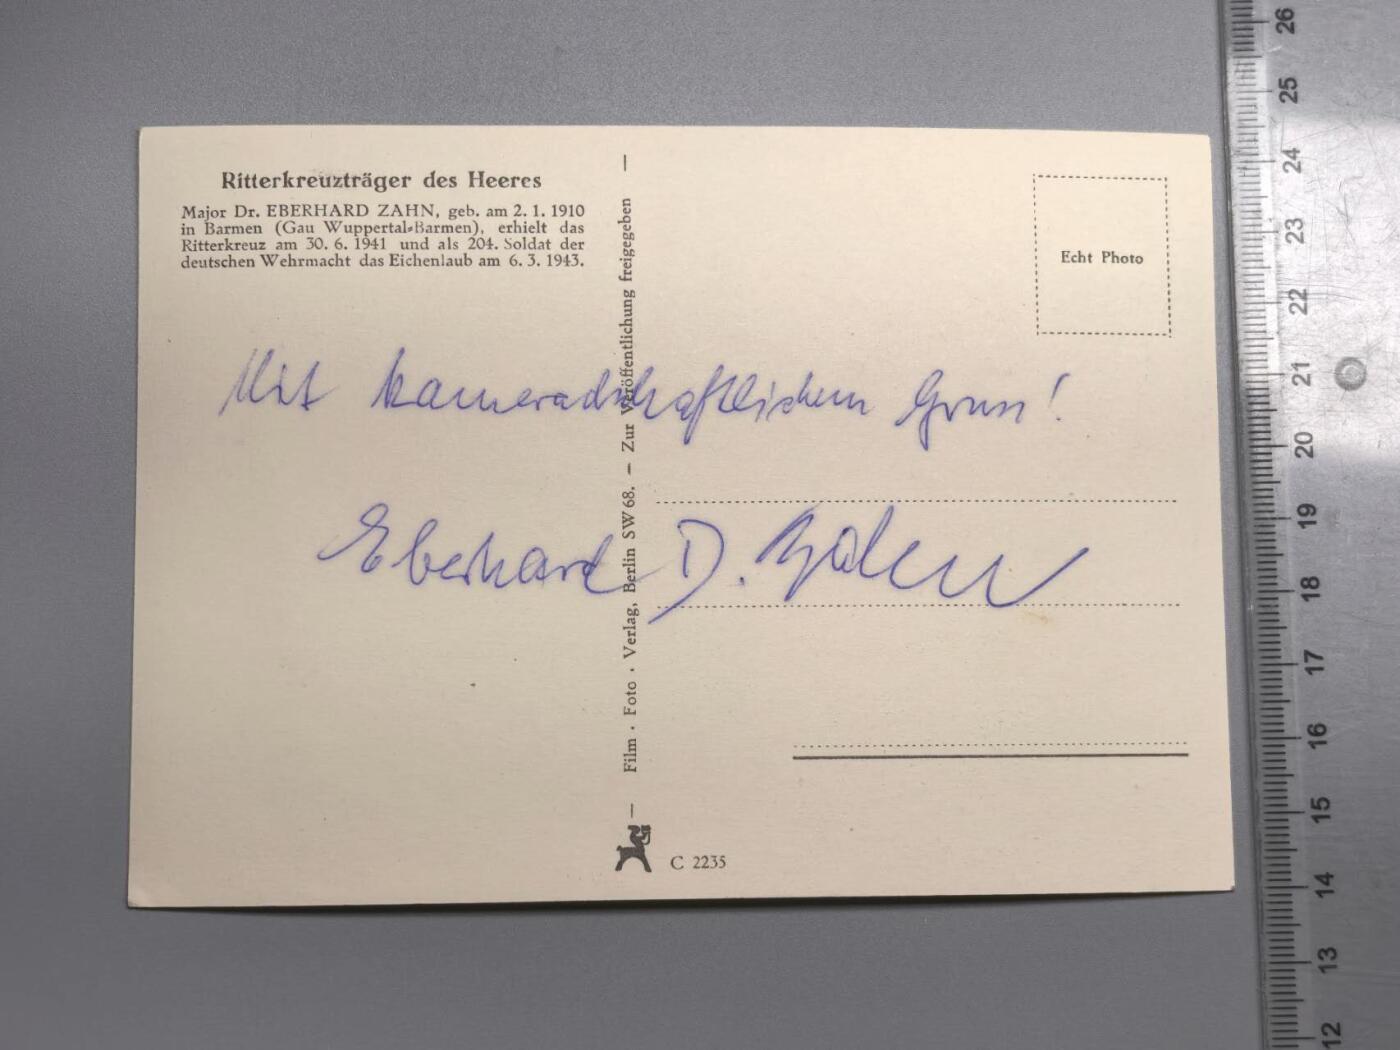 Ritterkreuzträger des Heeres
Major Dr. EBERHARD ZAHN, geb. am 2. 1. 1910
in Barmen (Gau Wuppertal-Barmen), erhielt das
Ritterkreuz am 30. 6. 1941 und als 204. Soldat der
deutschen Wehrmacht das Eichenlaub am 6. 3. 1943.
Echt Photo
Mit kameradschaftlichem Gruss!
Eberhard D. Zahn
— Film · Foto · Verlag, Berlin SW 68. — Zur Veröffentlichung freigegeben —
C 2235
26
25
24
23
22
21
20
19
18
17
16
15
14
13
12